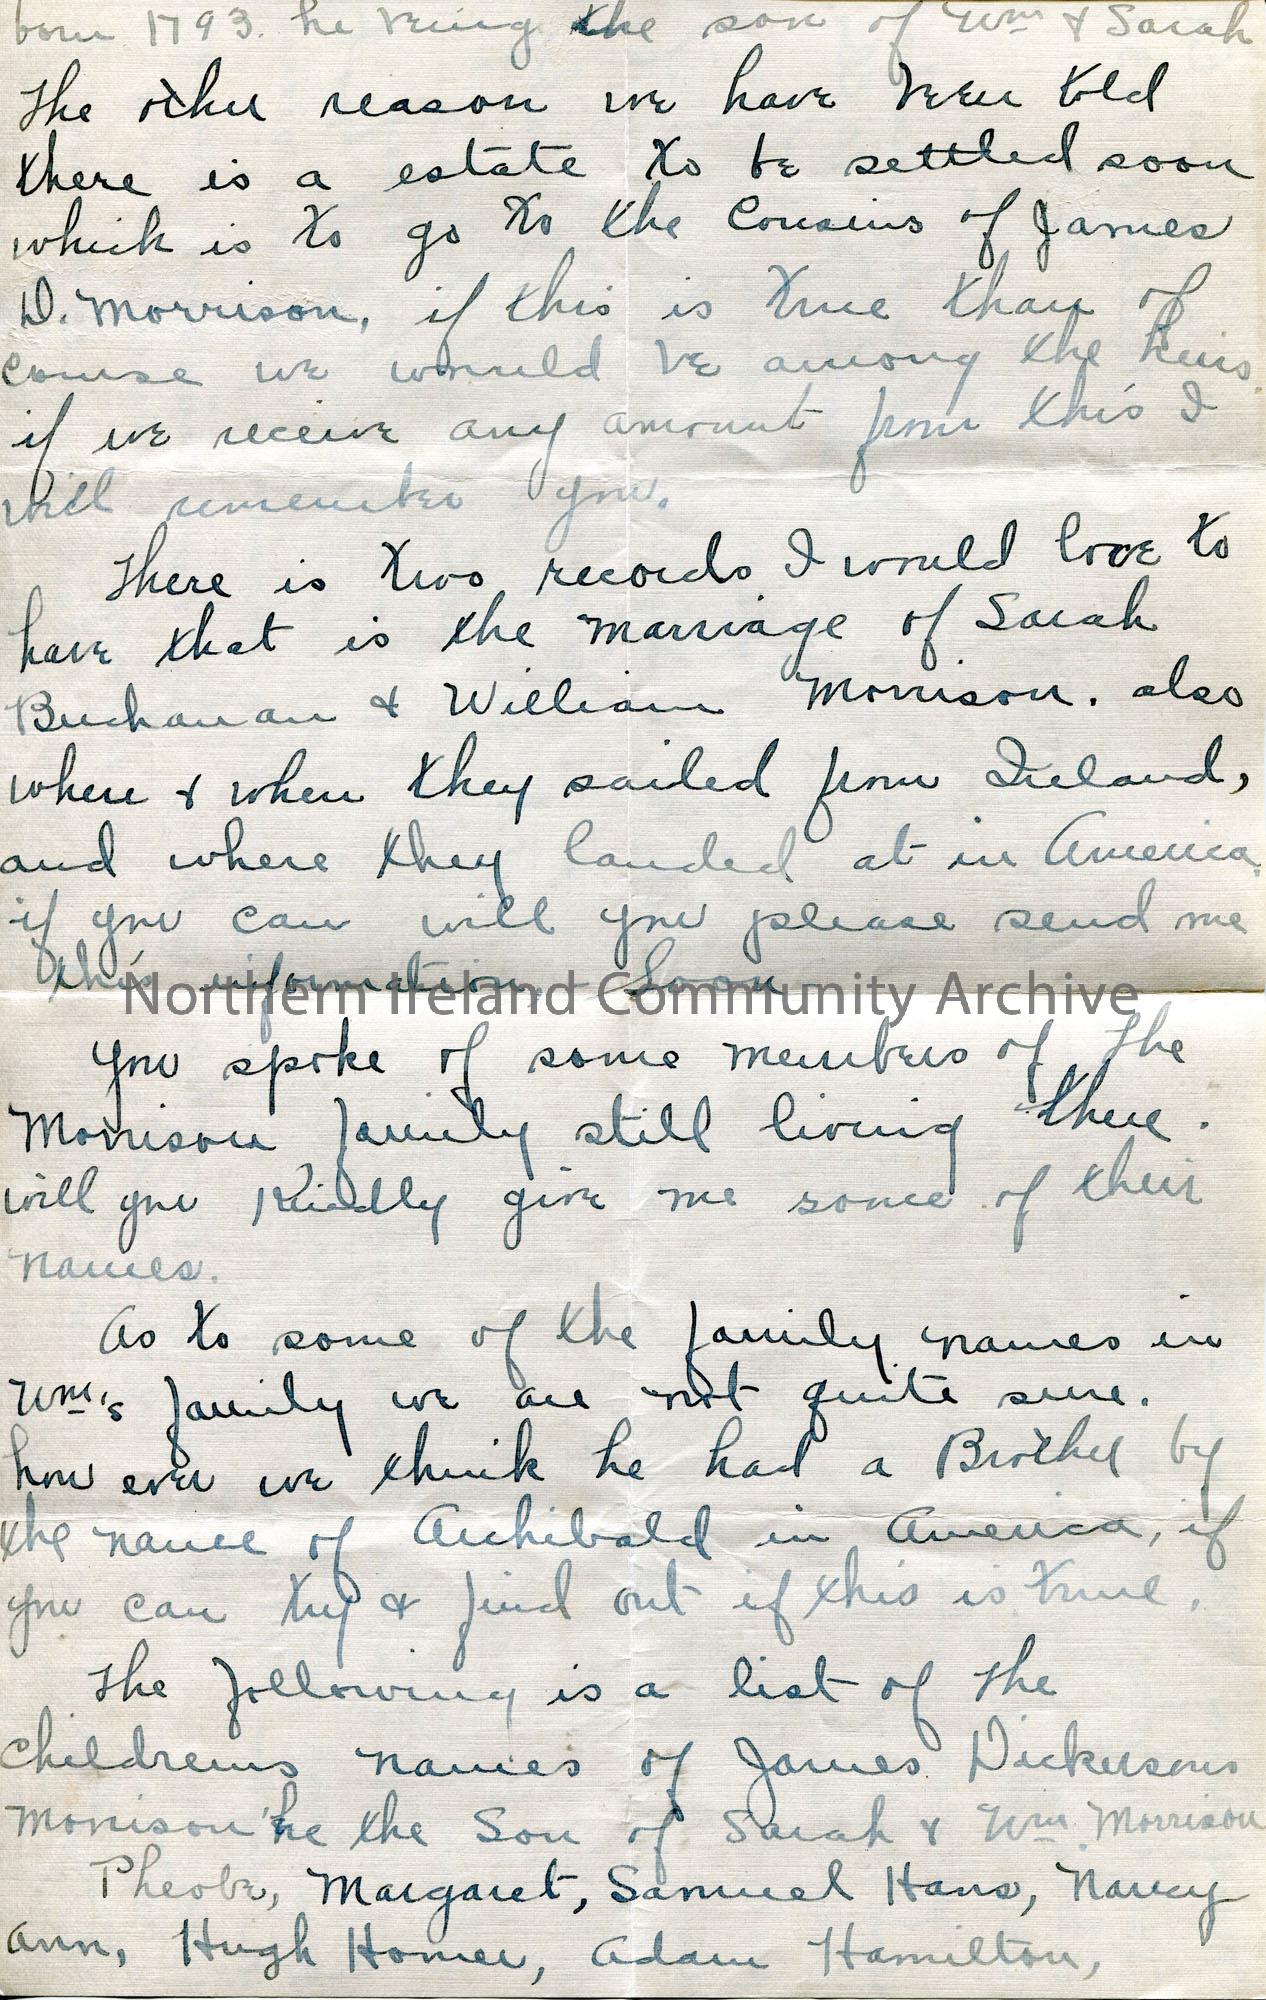 born 1793. he being the son of Wm & Sarah
The other reason we have been told
there is a estate to be settled soon
which is to go to the Cousins of James
D. Morrison, if this is true than of
course we would be among the heirs.
if we receive any amount from this I
will remember you.
There is two records I would love to
have that is the marriage of Sarah
Buchanan & William Morrison. also
where & when they sailed from Ireland,
and where they landed at in America.
if you can will you please send me
this information. Soon
Northern Ireland Community Archive
you spoke of some members of the
Morrison family still living there.
will you Kindly give me some of their
names.
As to some of the family names in
Wm's family we are not quite sure.
how ever we think he had a Brother by
the name of Archibald in America, if
you can try & find out if this is true.
The following is a list of the
Childrens names of James Dickersons
Morrison he the Son of Sarah & Wm. Morrison
Pheobe, Margaret, Samuel Hans, Nancy
Ann, Hugh Homer, Adam Hamilton,